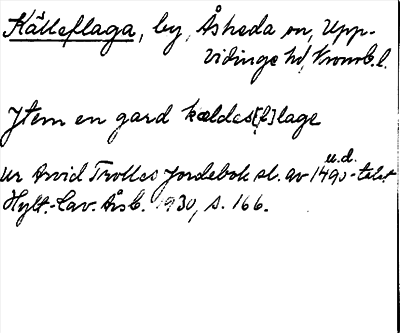 Källeflaga, by, Åsheda sn, Upp-
vidinge hd, Kronob. l.
Jtem en gard kældes[f]lage
u.d.
ur Arvid Trolles Jordebok sl. av 1490-talet
Hylt.-Cav. Årsb. 1930, s. 166.